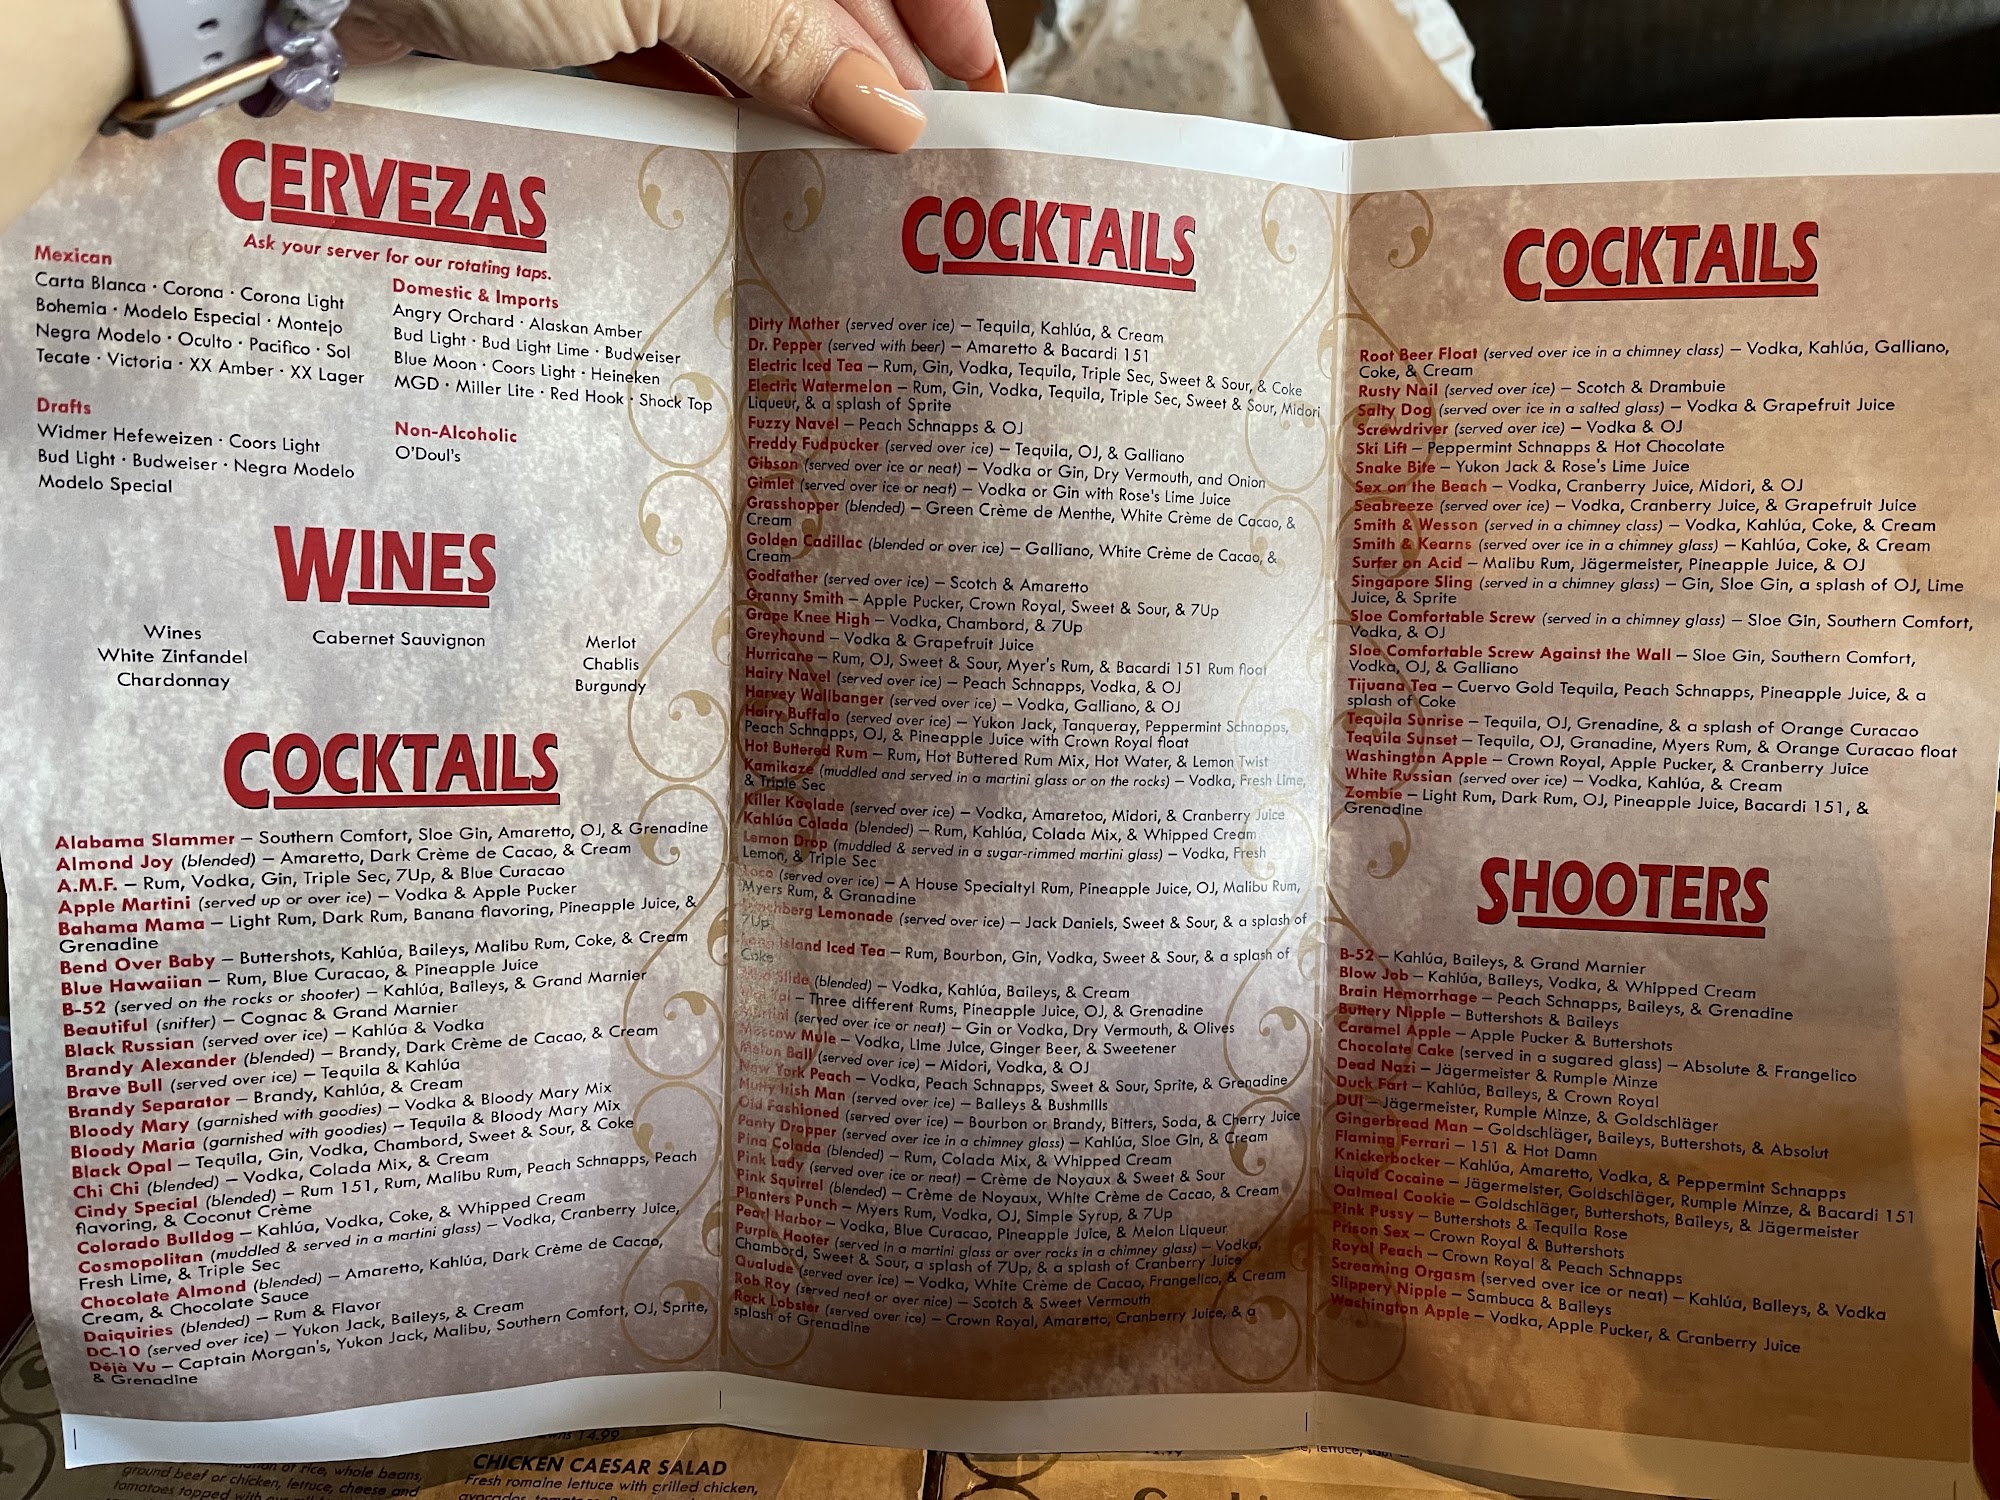 CERVEZAS
Ask your server for our rotating taps.
Mexican
Carta Blanca · Corona · Corona Light
Bohemia · Modelo Especial · Montejo
Negra Modelo · Oculto · Pacifico · Sol
Tecate · Victoria · XX Amber · XX Lager
Drafts
Widmer Hefeweizen · Coors Light
Bud Light · Budweiser · Negra Modelo
Modelo Special
Domestic & Imports
Angry Orchard · Alaskan Amber
Bud Light · Bud Light Lime · Budweiser
Blue Moon · Coors Light · Heineken
MGD · Miller Lite · Red Hook · Shock Top
Non-Alcoholic
O'Doul's
WINES
Wines
White Zinfandel
Chardonnay
Cabernet Sauvignon
Merlot
Chablis
Burgundy
COCKTAILS
Alabama Slammer – Southern Comfort, Sloe Gin, Amaretto, OJ, & Grenadine
Almond Joy (blended) – Amaretto, Dark Crème de Cacao, & Cream
A.M.F. – Rum, Vodka, Gin, Triple Sec, 7Up, & Blue Curacao
Apple Martini (served up or over ice) – Vodka & Apple Pucker
Bahama Mama – Light Rum, Dark Rum, Banana flavoring, Pineapple Juice, &
Grenadine
Bend Over Baby – Buttershots, Kahlúa, Baileys, Malibu Rum, Coke, & Cream
Blue Hawaiian – Rum, Blue Curacao, & Pineapple Juice
B-52 (served on the rocks or shooter) – Kahlúa, Baileys, & Grand Marnier
Beautiful (snifter) – Cognac & Grand Marnier
Black Russian (served over ice) – Kahlúa & Vodka
Brandy Alexander (blended) – Brandy, Dark Crème de Cacao, & Cream
Brave Bull (served over ice) – Tequila & Kahlúa
Brandy Separator – Brandy, Kahlúa, & Cream
Bloody Mary (garnished with goodies) – Vodka & Bloody Mary Mix
Bloody Maria (garnished with goodies) – Tequila & Bloody Mary Mix
Black Opal – Tequila, Gin, Vodka, Chambord, Sweet & Sour, & Coke
Chi Chi (blended) – Vodka, Colada Mix, & Cream
Cindy Special (blended) – Rum 151, Rum, Malibu Rum, Peach Schnapps, Peach
flavoring, & Coconut Crème
Colorado Bulldog – Kahlúa, Vodka, Coke, & Whipped Cream
Cosmopolitan (muddled & served in a martini glass) – Vodka, Cranberry Juice,
Fresh Lime, & Triple Sec
Chocolate Almond (blended) – Amaretto, Kahlúa, Dark Crème de Cacao,
Cream, & Chocolate Sauce
Daiquiries (blended) – Rum & Flavor
DC-10 (served over ice) – Yukon Jack, Baileys, & Cream
Déjà Vu – Captain Morgan's, Yukon Jack, Malibu, Southern Comfort, OJ, Sprite,
& Grenadine
COCKTAILS
Dirty Mother (served over ice) – Tequila, Kahlúa, & Cream
Dr. Pepper (served with beer) – Amaretto & Bacardi 151
Electric Iced Tea – Rum, Gin, Vodka, Tequila, Triple Sec, Sweet & Sour, & Coke
Electric Watermelon – Rum, Gin, Vodka, Tequila, Triple Sec, Sweet & Sour, Midori
Liqueur, & a splash of Sprite
Fuzzy Navel – Peach Schnapps & OJ
Freddy Fudpucker (served over ice) – Tequila, OJ, & Galliano
Gibson (served over ice or neat) – Vodka or Gin, Dry Vermouth, and Onion
Gimlet (served over ice or neat) – Vodka or Gin with Rose's Lime Juice
Grasshopper (blended) – Green Crème de Menthe, White Crème de Cacao, &
Cream
Golden Cadillac (blended or over ice) – Galliano, White Crème de Cacao, &
Cream
Godfather (served over ice) – Scotch & Amaretto
Granny Smith – Apple Pucker, Crown Royal, Sweet & Sour, & 7Up
Grape Knee High – Vodka, Chambord, & 7Up
Greyhound – Vodka & Grapefruit Juice
Hurricane – Rum, OJ, Sweet & Sour, Myer's Rum, & Bacardi 151 Rum float
Hairy Navel (served over ice) – Peach Schnapps, Vodka, & OJ
Harvey Wallbanger (served over ice) – Vodka, Galliano, & OJ
Hairy Buffalo (served over ice) – Yukon Jack, Tanqueray, Peppermint Schnapps,
Peach Schnapps, OJ, & Pineapple Juice with Crown Royal float
Hot Buttered Rum – Rum, Hot Buttered Rum Mix, Hot Water, & Lemon Twist
Kamikaze (muddled and served in a martini glass or on the rocks) – Vodka, Fresh Lime,
& Triple Sec
Killer Koolade (served over ice) – Vodka, Amaretoo, Midori, & Cranberry Juice
Kahlúa Colada (blended) – Rum, Kahlúa, Colada Mix, & Whipped Cream
Lemon Drop (muddled & served in a sugar-rimmed martini glass) – Vodka, Fresh
Lemon, & Triple Sec
Loco (served over ice) – A House Specialtyl Rum, Pineapple Juice, OJ, Malibu Rum,
Myers Rum, & Granadine
Lynchberg Lemonade (served over ice) – Jack Daniels, Sweet & Sour, & a splash of
7Up
Long Island Iced Tea – Rum, Bourbon, Gin, Vodka, Sweet & Sour, & a splash of
Coke
Slide (blended) – Vodka, Kahlúa, Baileys, & Cream
– Three different Rums, Pineapple Juice, OJ, & Grenadine
Martini (served over ice or neat) – Gin or Vodka, Dry Vermouth, & Olives
Moscow Mule – Vodka, Lime Juice, Ginger Beer, & Sweetener
Melon Ball (served over ice) – Midori, Vodka, & OJ
New York Peach – Vodka, Peach Schnapps, Sweet & Sour, Sprite, & Grenadine
Nutty Irish Man – Baileys & Bushmills
Old Fashioned (served over ice) – Bourbon or Brandy, Bitters, Soda, & Cherry Juice
Panty Dropper (served over ice in a chimney glass) – Kahlúa, Sloe Gin, & Cream
Pina Colada (blended) – Rum, Colada Mix, & Whipped Cream
Pink Lady (served over ice or neat) – Crème de Noyaux & Sweet & Sour
Pink Squirrel (blended) – Crème de Noyaux, White Crème de Cacao, & Cream
Planters Punch – Myers Rum, Vodka, OJ, Simple Syrup, & 7Up
Pearl Harbor – Vodka, Blue Curacao, Pineapple Juice, & Melon Liqueur
Purple Hooter (served in a martini glass or over rocks in a chimney glass) – Vodka,
Chambord, Sweet & Sour, a splash of 7Up, & a splash of Cranberry Juice
Qualude (served over ice) – Vodka, White Crème de Cacao, Frangelico, & Cream
Rob Roy (served neat or over nice) – Scotch & Sweet Vermouth
Rock Lobster (served over ice) – Crown Royal, Amaretto, Cranberry Juice, & a
splash of Grenadine
COCKTAILS
Root Beer Float (served over ice in a chimney class) – Vodka, Kahlúa, Galliano,
Coke, & Cream
Rusty Nail (served over ice) – Scotch & Drambuie
Salty Dog (served over ice in a salted glass) – Vodka & Grapefruit Juice
Screwdriver (served over ice) – Vodka & OJ
Ski Lift – Peppermint Schnapps & Hot Chocolate
Snake Bite – Yukon Jack & Rose's Lime Juice
Sex on the Beach – Vodka, Cranberry Juice, Midori, & OJ
Seabreeze (served over ice) – Vodka, Cranberry Juice, & Grapefruit Juice
Smith & Wesson (served in a chimney class) – Vodka, Kahlúa, Coke, & Cream
Smith & Kearns (served over ice in a chimney glass) – Kahlúa, Coke, & Cream
Surfer on Acid – Malibu Rum, Jägermeister, Pineapple Juice, & OJ
Singapore Sling (served in a chimney glass) – Gin, Sloe Gin, a splash of OJ, Lime
Juice, & Sprite
Sloe Comfortable Screw (served in a chimney glass) – Sloe Gin, Southern Comfort,
Vodka, & OJ
Sloe Comfortable Screw Against the Wall – Sloe Gin, Southern Comfort,
Vodka, OJ, & Galliano
Tijuana Tea – Cuervo Gold Tequila, Peach Schnapps, Pineapple Juice, & a
splash of Coke
Tequila Sunrise – Tequila, OJ, Grenadine, & a splash of Orange Curacao
Tequila Sunset – Tequila, OJ, Granadine, Myers Rum, & Orange Curacao float
Washington Apple – Crown Royal, Apple Pucker, & Cranberry Juice
White Russian (served over ice) – Vodka, Kahlúa, & Cream
Zombie – Light Rum, Dark Rum, OJ, Pineapple Juice, Bacardi 151, &
Grenadine
SHOOTERS
B-52 – Kahlúa, Baileys, & Grand Marnier
Blow Job – Kahlúa, Baileys, Vodka, & Whipped Cream
Brain Hemorrhage – Peach Schnapps, Baileys, & Grenadine
Buttery Nipple – Buttershots & Baileys
Caramel Apple – Apple Pucker & Buttershots
Chocolate Cake (served in a sugared glass) – Absolute & Frangelico
Dead Nazi – Jägermeister & Rumple Minze
Duck Fart – Kahlúa, Baileys, & Crown Royal
DUI – Jägermeister, Rumple Minze, & Goldschläger
Gingerbread Man – Goldschläger, Baileys, Buttershots, & Absolut
Flaming Ferrari – 151 & Hot Damn
Knickerbocker – Kahlúa, Amaretto, Vodka, & Peppermint Schnapps
Liquid Cocaine – Jägermeister, Goldschläger, Rumple Minze, & Bacardi 151
Oatmeal Cookie – Goldschläger, Buttershots, Baileys, & Jägermeister
Pink Pussy – Buttershots & Tequila Rose
Prison Sex – Crown Royal & Buttershots
Royal Peach – Crown Royal & Peach Schnapps
Screaming Orgasm (served over ice or neat) – Kahlúa, Baileys, & Vodka
Slippery Nipple – Sambuca & Baileys
Washington Apple – Vodka, Apple Pucker, & Cranberry Juice
14.99
of rice, whole beans,
ground beef or chicken, lettuce, cheese and
tomatoes topped with
CHICKEN CAESAR SALAD
Fresh romaine lettuce with grilled chicken,